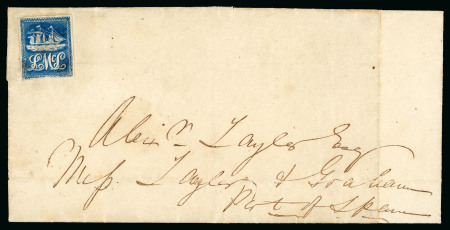 LMcL
Alexr. Taylor Esq
Mess Taylor & Graham
Port of Spain